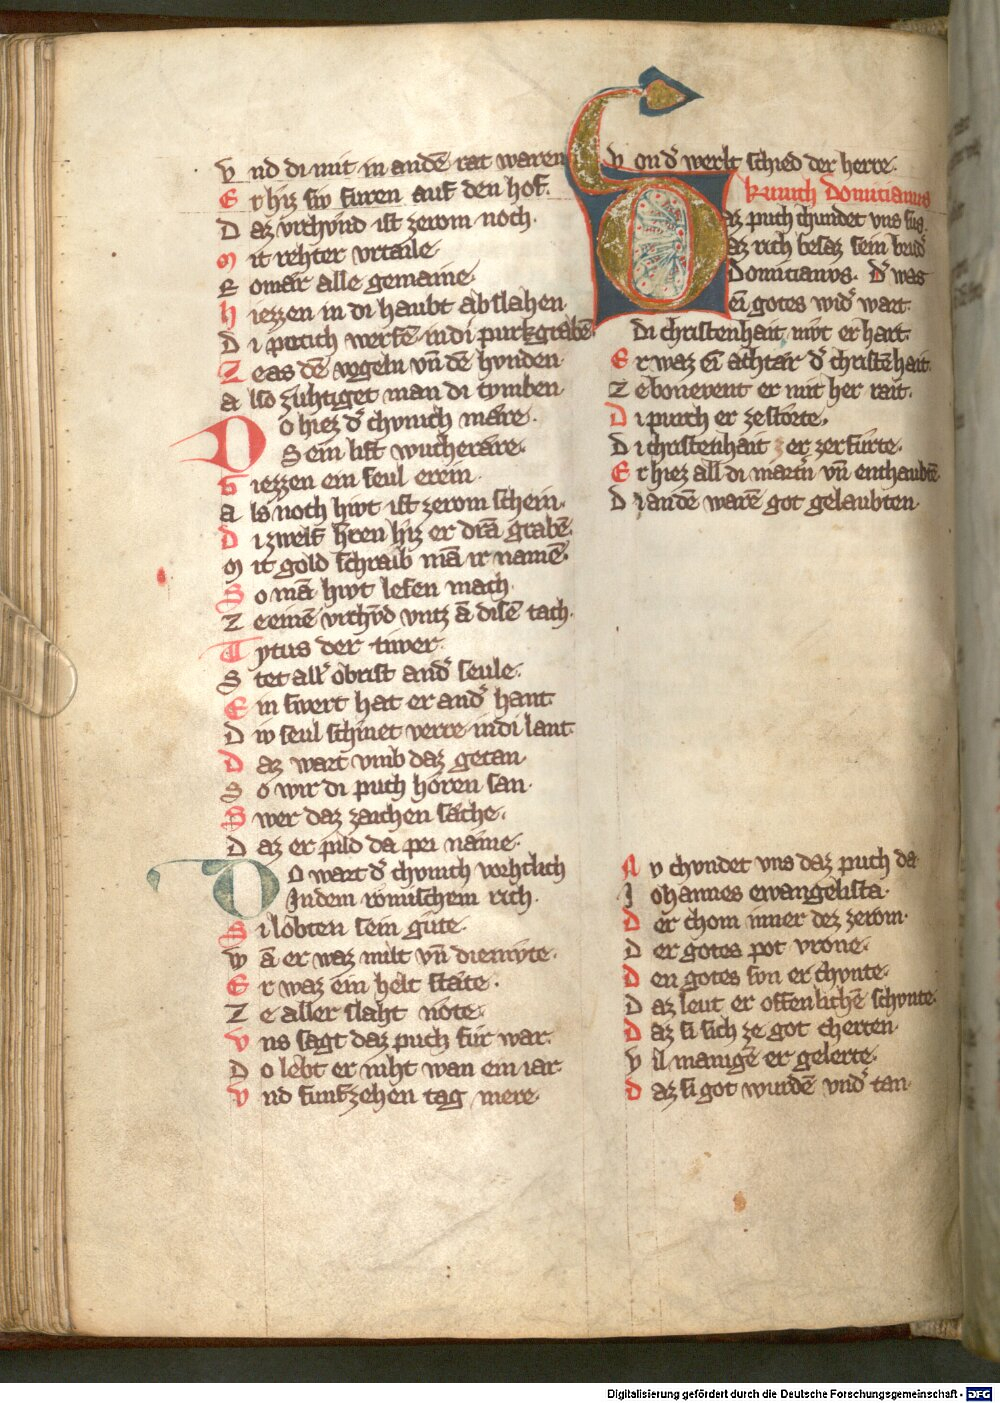 Vnd di mit in andē rat waren
Er hiz siv furen auf den hof.
Daz vrchvnd ist zerom noch.
Mit rehter vrtaile
Romār alle gemaine.
Hiezzen in di haubt abslahen
Di potich werfē in di purkgrabē
Ze as dē vogeln vn̄ dē hvnden.
Also zuhtiget man di tymben
Do hiez dr chvnich māre.
Sein list wucherāre.
Giezzen ein seul erein
Als noch hivt ist zerom schein.
Di zwelf hren hiz er dran grabē
Mit gold schraib mā ir namē.
So mā hivt lesen mach.
Ze einē vrchvd vntz ā disē tach.
Tytus der tiver.
Stet allr obrist andr seule.
Ein swert hat er andr hant
Div seul schinet verre indi lant.
Daz wart vmb daz getan.
So wir di puch horen san.
Swer daz zaichen sāche.
Daz er pild da pei nāme.
Do wart dr chvnich vorhtlich
Indem romischem rich.
Si lobten sein gute.
Wā er waz milt vn̄ diemvte.
Er waz ein helt stāte.
Ze aller slaht note.
Vns sagt daz puch fur war.
Do lebt er niht wan ein iar
Vnd funfzehen tag mere.
Von dr werlt schied der herre.
kunich Domicianus
Daz puch chundet vns sus.
Daz rich besaz sein brudr
Domicianvs. Dr was
ei gotes widr wart.
Di christenhait mvt er hart.
Er waz ei āchtār dr christēhait.
Ze bonevent er mit her rait.
Di purch er zestorte.
Di christenhait er zerfurte.
Er hiez all di martrn vn̄ enthaubtē
Di andē warē got gelaubten.
Nv chvndet vns daz puch da
Johannes ewangelista.
Der chom inner dez zerom.
Der gotes pot vrone.
Den gotes svn er chvnte.
Daz leut er offenlichē schvnte.
Daz si sich ze got cherten.
Vil manigē er gelerte.
Daz si got wurdē vndr tan.
Digitalisierung gefördert durch die Deutsche Forschungsgemeinschaft - DFG